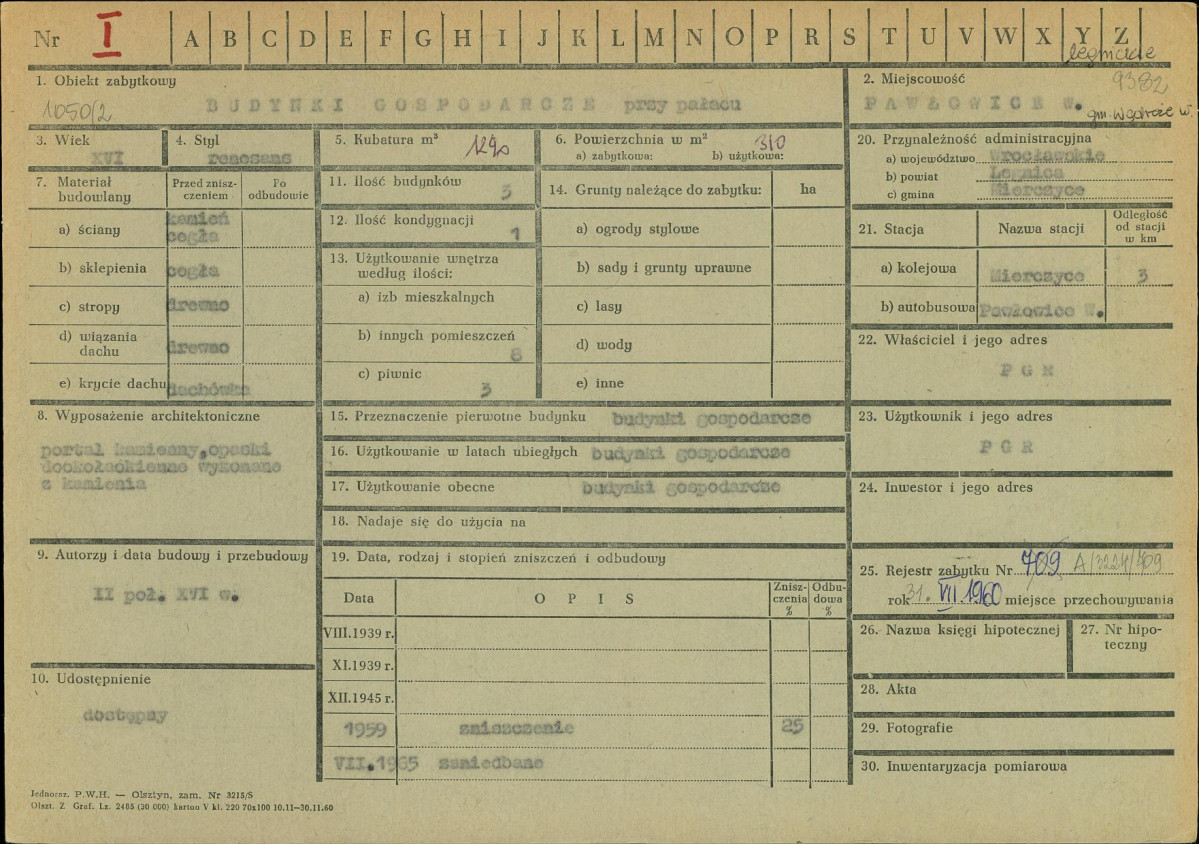 Nr I A B C D E F G H I J K L M N O P R S T U V W X Y Z
legnickie
1. Obiekt zabytkowy
1050/2
BUDYNKI GOSPODARCZE przy pałacu
2. Miejscowość
9382
PAWŁOWICE W.
gm. Wądroże W.
3. Wiek
XVI
4. Styl
renesans
5. Kubatura m³
1290
6. Powierzchnia w m²
310
a) zabytkowa: b) użytkowa:
20. Przynależność administracyjna
a) województwo Wrocławskie
b) powiat Legnica
c) gmina Mierczyce
7. Materiał budowlany
Przed znisz-
czeniem
Po
odbudowie
a) ściany kamień
cegła
b) sklepienia cegła
c) stropy drewno
d) wiązania
dachu drewno
e) krycie dachu dachówka
11. Ilość budynków 3
12. Ilość kondygnacji 1
13. Użytkowanie wnętrza
według ilości:
a) izb mieszkalnych
b) innych pomieszczeń
8
c) piwnic 3
14. Grunty należące do zabytku: ha
a) ogrody stylowe
b) sady i grunty uprawne
c) lasy
d) wody
e) inne
21. Stacja Nazwa stacji Odległość
od stacji
w km
a) kolejowa Mierczyce 3
b) autobusowa Pawłowice W.
22. Właściciel i jego adres
P G R
8. Wyposażenie architektoniczne
portal kamienny, opaski
dookołaokienne wykonane
z kamienia
15. Przeznaczenie pierwotne budynku budynki gospodarcze
16. Użytkowanie w latach ubiegłych budynki gospodarcze
17. Użytkowanie obecne budynki gospodarcze
18. Nadaje się do użycia na
23. Użytkownik i jego adres
P G R
24. Inwestor i jego adres
9. Autorzy i data budowy i przebudowy
II poł. XVI w.
19. Data, rodzaj i stopień zniszczeń i odbudowy
Data O P I S Znisz-
czenia
% Odbu-
dowa
%
VIII.1939 r.
XI.1939 r.
XII.1945 r.
1959 zniszczenie 25
VII.1965 zaniedbane
25. Rejestr zabytku Nr 709 A/3224/709
rok 31. VII.1960 miejsce przechowywania
26. Nazwa księgi hipotecznej
27. Nr hipo-
teczny
28. Akta
29. Fotografie
30. Inwentaryzacja pomiarowa
10. Udostępnienie
dostępny
Jednoraz. P.W.H. — Olsztyn, zam. Nr 3215/S
Olszt. Z. Graf. Lz. 2485 (30 000) karton V kl. 220 70x100 10.11—30.11.60